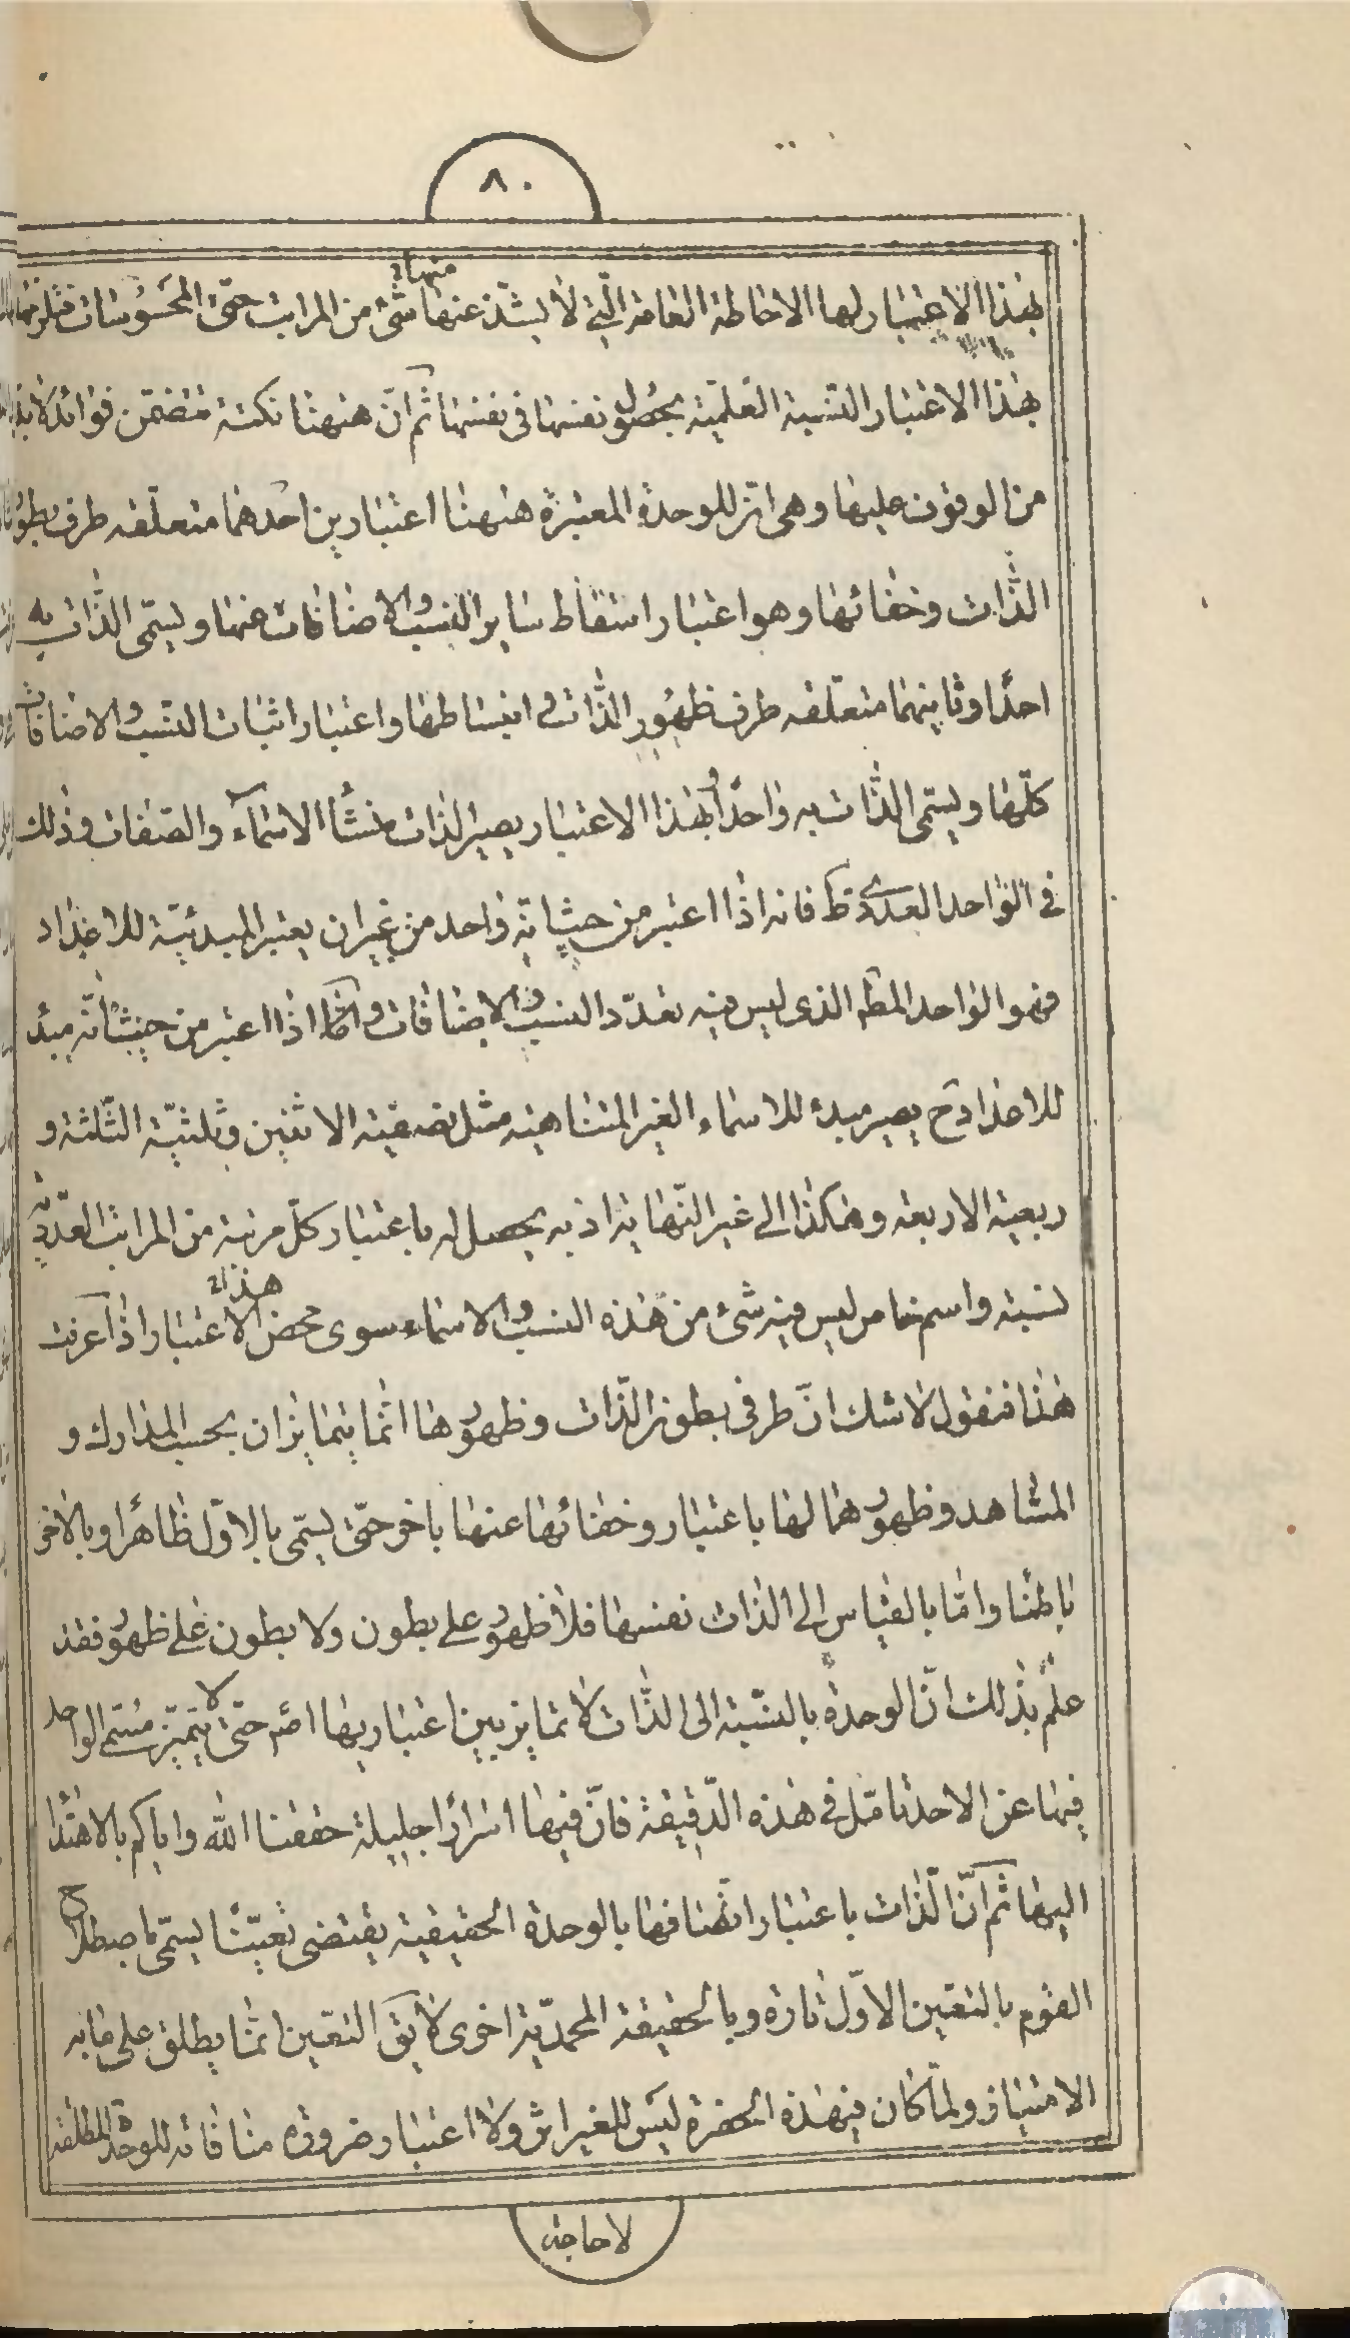 ٨٠
منهاخ
بهذا الاعتبار لها الاحاطة العامة الّتى لا يشذّ عنها شئ من المراتب حتّى المحسوسات
بهذا الاعتبار النسبة العلميّة بحصول نفسها فى نفسها ثم انّ هيهنا نكتة متضمّن فوائد لابد
من الوقوف عليها وهى انّ للوحدة المعتبرة هيهنا اعتبارين احدهما متعلّقه طرف بطون
الذّات وخفائها وهو اعتبار اسقاط ساير النسب والاضافات عنها ويسمّى الذّات به
احدًا وثانيهما متعلّقه طرف ظهور الذّات وانبساطها واعتبار اثبات النسب والاضافات
كلّها ويسمّى الذّات به واحدًا وبهذا الاعتبار يصير الذات منشأ الاسمآء والصّفات وذلك
فى الواحد العددى ظ فانه اذا اعتبر من حيث انّه واحد من غير ان يعتبر المبدئيّة للاعداد
فهو الواحد المط الذى ليس فيه تعدّد النسب والاضافات وامّا اذا اعتبر من حيث انّه مبدء
للاعداد فح يصير مبدء للاسماء الغير المتناهيه مثل نصفيّة الاثنين وثلثيّة الثّلثة و
ربعية الاربعه وهكذا الى غير النّهاية اذ به يحصل له باعتبار كلّ مرتبة من المراتب العدديّة
هذاخ
نسبة واسم خاص ليس فيه شئ من هذه النسب والاسماء سوى محض الاعتبار اذا عرفت
هذا فنقول لا شك انّ طرفى بطون الذّات وظهورها انّما يتمايزان بحسب المدارك و
المشاهد وظهورهما لها باعتبار وخفائها عنها باخر حتّى يسمّى بالاوّل ظاهرا وبالاخر
باطنا وامّا بالقياس الى الذات نفسها فلا ظهور على بطون ولا بطون على ظهور فقد
علم بذلك انّ الوحدة بالنّسبة الى الذّات لا تمايز بين اعتباريها اصم حتّى لا يتميّز مسمّى الواحد
فيها عن الاحد تامّل فى هذه الدّقيقة فانّ فيها اسرارًا جليلة حققنا الله واياكم بالاهتداء
اليها ثم انّ الّذات باعتبار اتّصافها بالوحدة الحقيقية يقتضى تعيّنًا يسمّى باصطلاح
القوم بالتعين الاوّل تارة وبالحقيقة المحمّدية اخرى لا يق التعيّن انّما يطلق على ما به
الامتياز ولمّا كان فى هذه الحضرة ليس للغير اثر ولا اعتبار ضرورة منافاته للوحدة المطلقة
لا حاجة